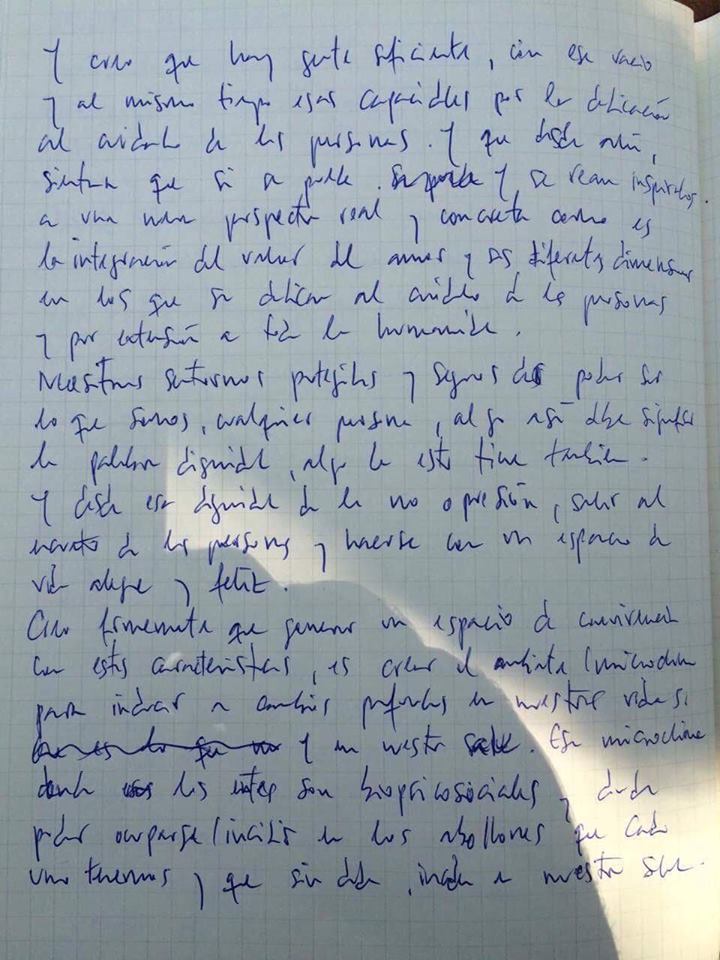 Y creo que hay gente suficiente, con ese vacio
y al mismo tiempo esas capacidades por la dedicación
al cuidado de las personas. Y que desde ahí,
sientan que si se puede. Y se vean inspirados
a una nueva perspectiva real y concreta como es
la integración del valor del amor y sus diferentes dimensiones
en los que se dedican al cuidado de las personas
y por extensión a toda la humanidad.
Necesitamos sentirnos protegidos y seguros de poder ser
lo que somos, cualquier persona, algo así debe significar
la palabra dignidad, algo de esto tiene también.
Y desde esa dignidad de la no opresión, salir al
de las personas y hacerse con un espacio de
vida alegre y feliz.
Creo firmemente que generar un espacio de convivencia
con estas características, es crear el ambiente/microclima
para indicar a cambios profundos en nuestras vidas
Y en nuestra salud. Ese microclima
donde los entes son biopsicosociales y donde
poder ocuparse/incidir en los abollones que cada
uno tenemos y que sin duda, inciden en nuestra salud.